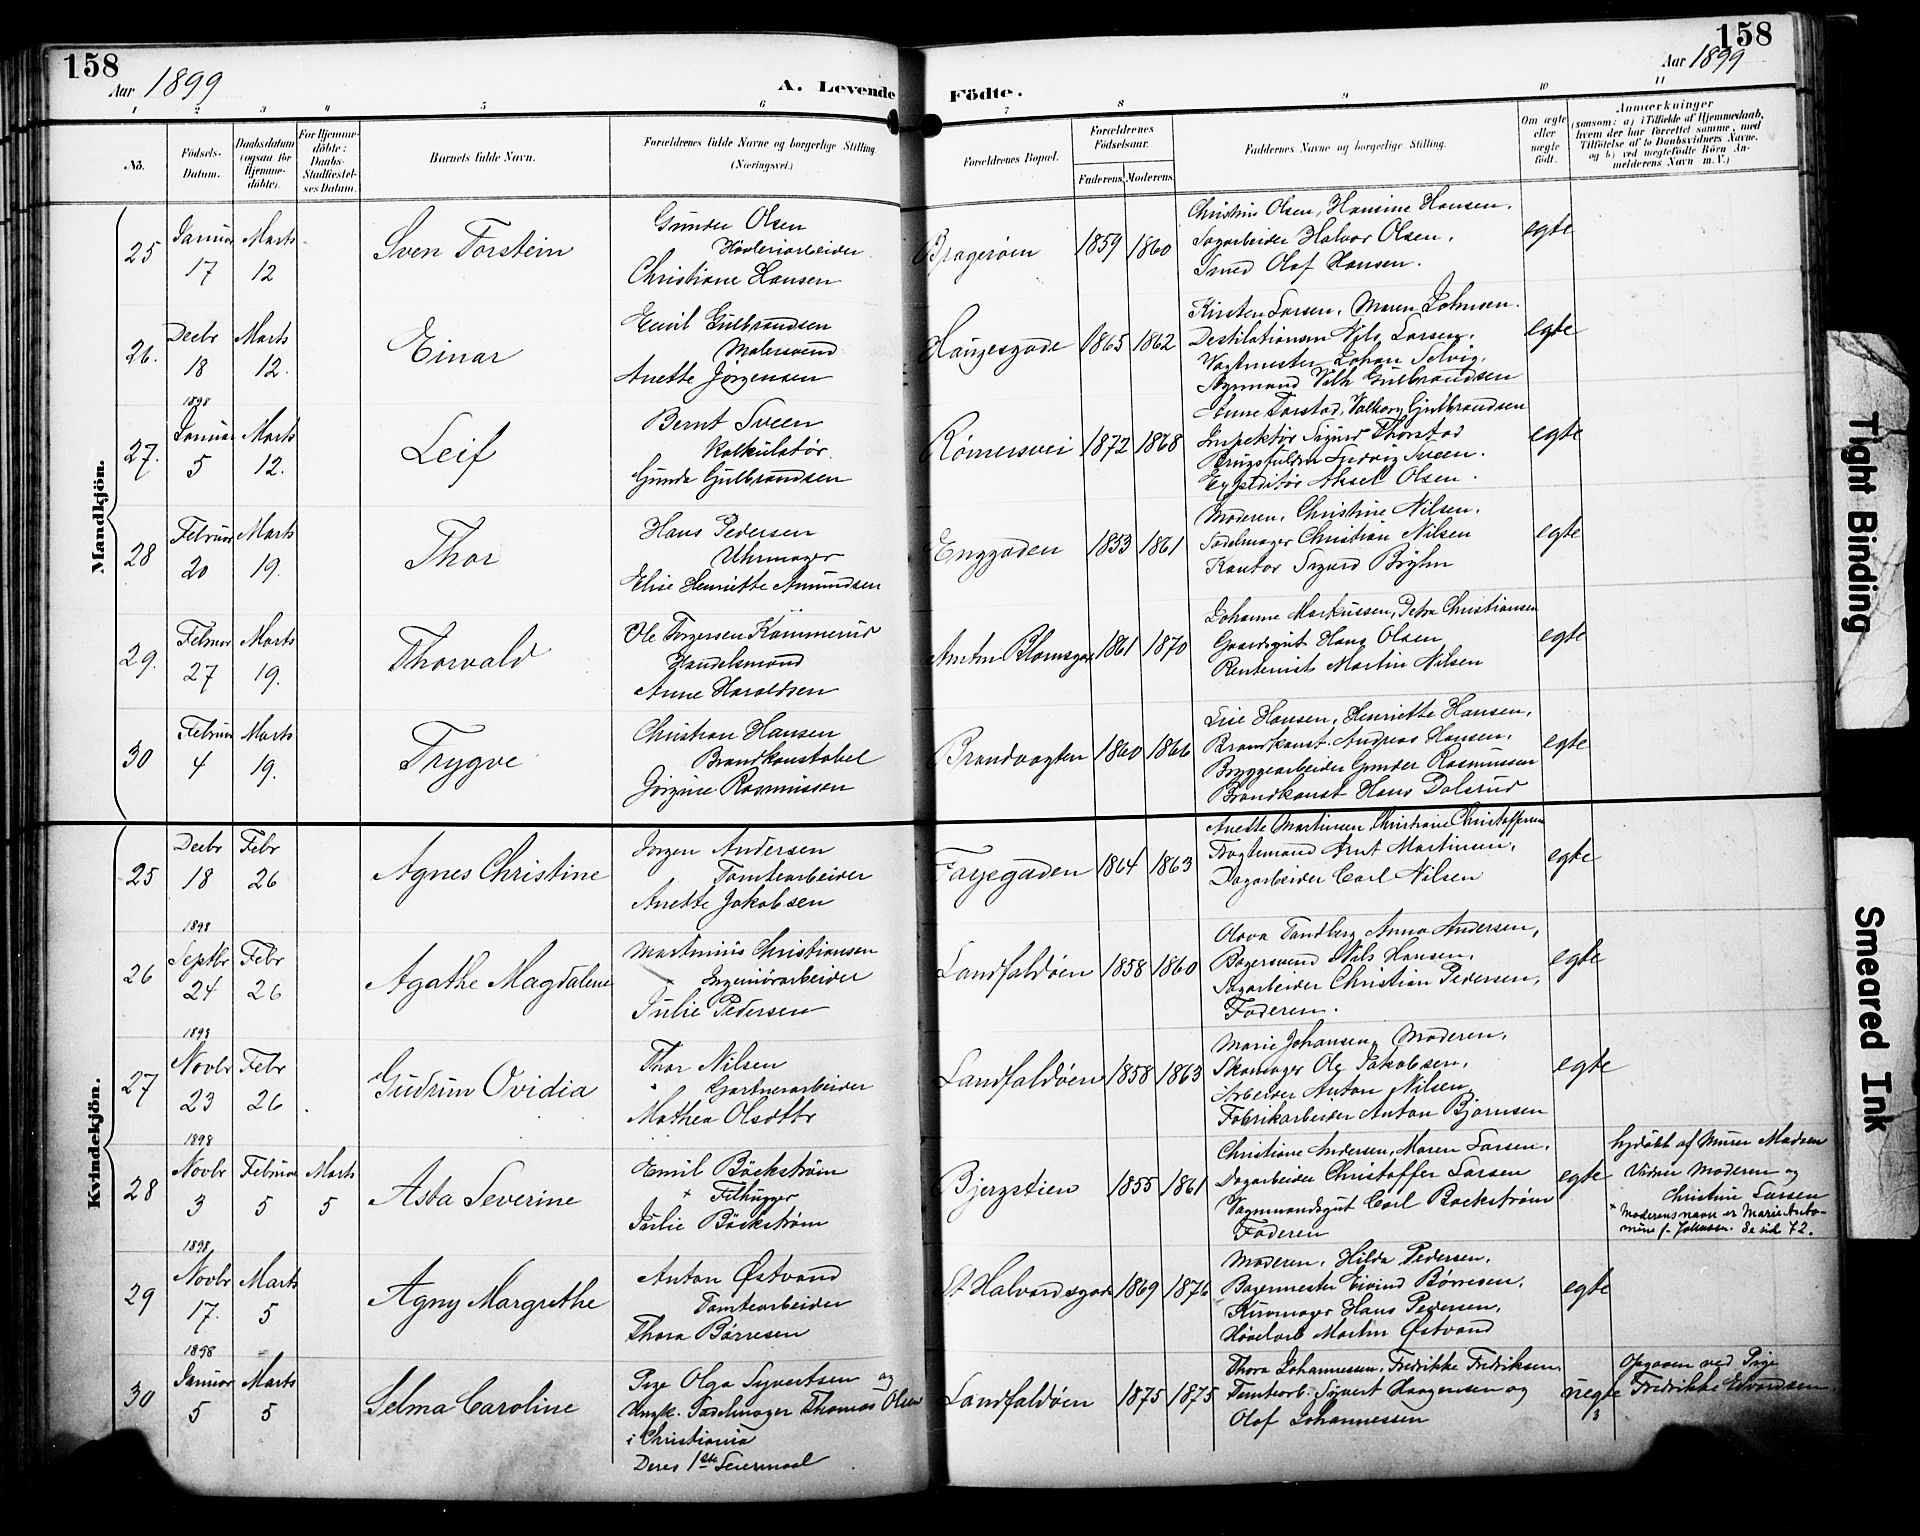 158
158
Aar 1899
A. Levende Födte.
Aar 1899
1 2 3 4 5 6 7 8 9 10 11
No.
Födsels-Datum.
Daabsdatum (ogsaa for Hjemmedöbte).
For Hjemmedöbte: Daabs-Stadfæstelses Datum.
Barnets fulde Navn.
Forældrenes fulde Navne og borgerlige Stilling. (Næringsvei.)
Forældrenes Bopæl.
Forældrenes Födselsaar.
Faderens. Moderens.
Faddernes Navne og borgerlige Stilling.
Om ægte eller uægte födt.
Anmærkninger
(saasom: a) i Tilfælde af Hjemmedaab, hvem der har forrettet samme, med Tilföielse af to Daabsvidners Navne, og b) ved uægtefödte Börn Anmelderens Navn m. V.)
Mandkjön.
25
Januar 17
Marts 12
Sven Torstein
Gunder Olsen
Høvleriarbeider
Christiane Hansen
Bragerøen
1859 1860
Christine Olsen, Hansine Hansen.
Sagarbeider Halvor Olsen,
Smed Olaf Hansen.
egte
26.
Decbr 18 1898
Marts 12.
Einar
Emil Gulbrandsen
Malersvend
Anette Jørgensen
Haugesgade
1865 1862
Kirsten Larsen, Maren Johnsen.
Destilationsm Nils Larsen,
Vagtmester Johan Selvig,
Agnmand Vilh Gulbrandsen
egte
27.
Januar 5
Marts 12.
Leif
Bernt Sveen
Kalkulatør.
Gunda Gulbrandsen
Rømersvei
1872 1868
Anne Torstad, Valborg Gulbrandsen
Inspektør Sigurd Thorstad
Ludvig Sveen.
Expeditør Aksel Olsen.
egte
28
Februar 20
Marts 19.
Thor
Hans Pedersen
Uhrmager
Elise Henriette Amundsen
Enggaden
1853 1861
Moderen, Christine Nilsen,
Sadelmager Christian Nilsen
Kantor Sigurd Bryhn
egte
29.
Februar 27
Marts 19.
Thorvald
Ole Torgersen Kammerud
Handelsmand
Anne Haraldsen
Amtm Blomsgade
1861 1870
Johanne Markussen, Petra Christiansen
Gaardsgut Hans Olsen
Rentenist Martin Nilsen
egte
30
Februar 4
Marts 19.
Trygve
Christian Hansen
Brandkonstabel
Jørgine Rasmussen
Brandvagten
1860 1866
Lise Hansen, Henriette Hansen,
Brandkonst. Andreas Hansen,
Bryggearbeider Gunder Rasmussen
Brandkonst Hans Dalsrud
egte
Kvindekjön.
25
Decbr 18 1898
Febr 26
Agnes Christine
Jørgen Andersen
Tomtearbeider
Anette Jakobsen
Færgegaden
1864 1863
Anette Martinsen, Christiane Christoffersen
Fragtemand Arnt Martinsen,
Dagarbeider Carl Nilsen
egte
26
Septbr 24 1898
Febr 26
Agathe Magdalene
Martinius Christiansen
Ingeniørarbeider
Julie Pedersen
Landfaldøen
1858 1860
Olava Tandberg Anna Andersen,
Bagersvend Nils Hansen,
Sagarbeider Christian Pedersen,
Faderen.
egte
27
Novbr 23 1898
Febr 26
Gudrun Ovidia
Thor Nilsen
Gartnerarbeider
Mathea Olsdttr
Landfaldøen
1858 1863
Marie Johansen, Moderen,
Skomager Ole Jakobsen,
Arbeider Anton Nilsen,
Fabrikarbeider Anton Bjørnsen
egte
28
Novbr 3 1898
Februar 5
Marts 5
Asta Severine
Emil Böckstrøm
* Filhugger
Julie Böckstrøm
Bjergstien
1855 1861
Christiane Andersen, Maren Larsen,
Dagarbeider Christoffer Larsen
Vognmandsgut Carl Bockstrøm
Faderen
egte
hjdøbt af Murer Madsen
Vidner Moderen og
Christine Larsen
* Moderens navn er Marie Antomine f. Johnsen. Se sid 72.
29
Novbr 17. 1898
Marts 5
Agny Margrethe
Anton Østvand
Tomtearbeider
Thora Børresen
St Halvardsgade
1869 1876
Moderen, Hilda Pedersen,
Bagermester Eivind Børresen,
Kurvmager Hans Pedersen,
Høvelarb Martin Østvand
egte
30
Januar 5
Marts 5
Selma Caroline
Pige Olga Syvertsen og
Ungk. Sadelmager Thomas Olsen
i Christiania
Deres 1ste Leiermaal
Landfaldøen
1875 1875
Thora Johannessen, Fredrikke Fredriksen,
Tomtearb. Syvert Haagensen og
Olaf Johannessen
uegte
3
Opgaven ved Pige
Fredrikke Edvardsen
Tight Binding
Smeared Ink